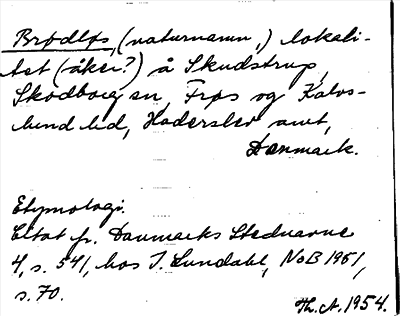 Brødløs, (naturnamn,) lokali-
tet (åker?) å Skudstrup,
Skodborg sn, Frøs og Kalvs-
lund hd, Haderslev amt,
Danmark.
Etymologi.
Citat fr. Danmarks Stednavne
4, s. 541, hos J. Lundahl, NoB 1961,
s. 70.
Th. A. 1954.